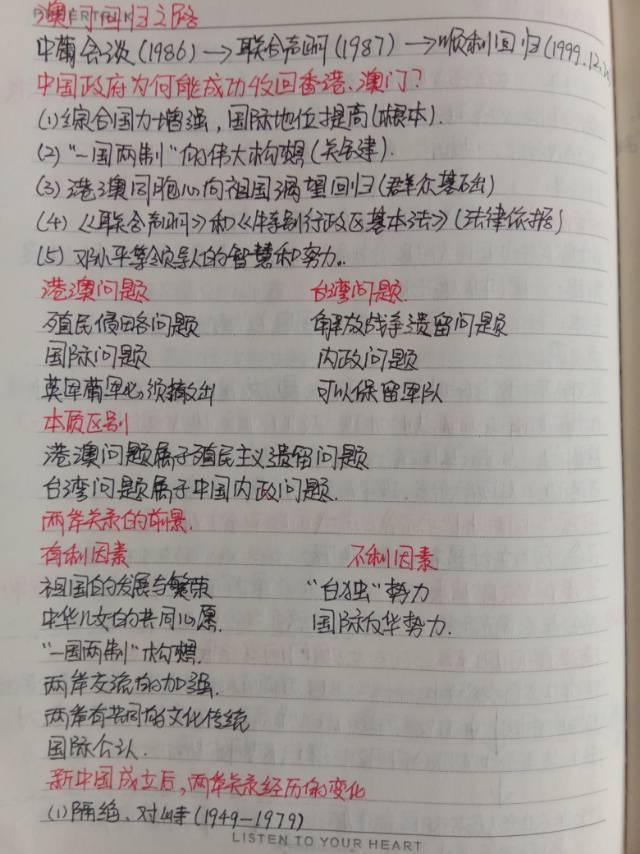 澳门回归之路
中葡会谈(1986)→联合声明(1987)→顺利回归(1999.12.20
中国政府为何能成功收回香港、澳门?
(1)综合国力增强,国际地位提高(根本).
(2)"一国两制"的伟大构想(关键).
(3)港澳同胞心向祖国渴望回归(群众基础)
(4)《联合声明》和《特别行政区基本法》(法律依据)
(5)邓小平等领导人的智慧和努力.
港澳问题 台湾问题.
殖民侵略问题 解放战争遗留问题
国际问题 内政问题
英军葡军必须撤出 可以保留军队
本质区别
港澳问题属于殖民主义遗留问题
台湾问题属于中国内政问题.
两岸关系的前景.
有利因素 不利因素
祖国的发展与繁荣 "台独"势力
中华儿女的共同心愿. 国际反华势力.
"一国两制"构想.
两岸交流的加强.
两岸有共同的文化传统
国际公认.
新中国成立后,两岸关系经历的变化
(1)隔绝、对峙(1949—1979)
LISTEN TO YOUR HEART